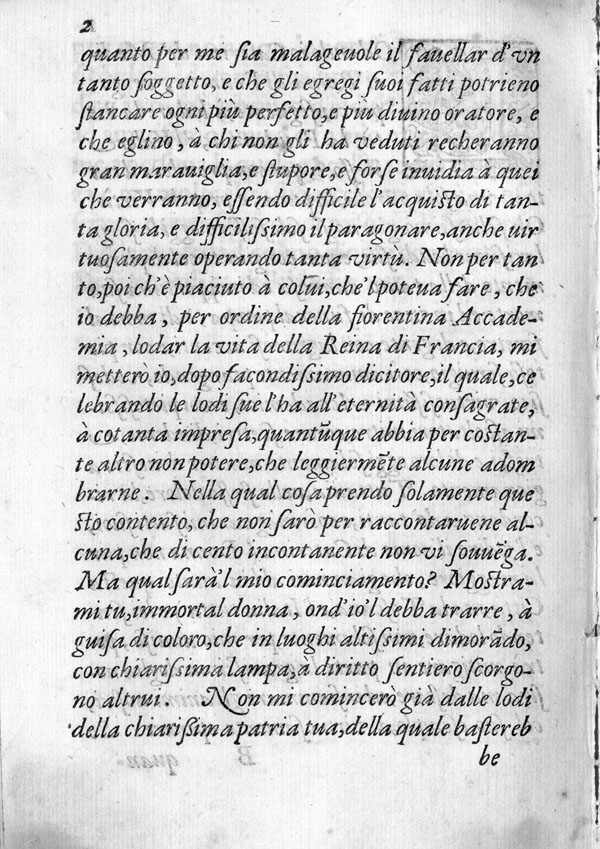 2
quanto per me sia malageuole il fauellar d'vn
tanto soggetto, e che gli egregi suoi fatti potrieno
stancare ogni più perfetto, e più diuino oratore, e
che eglino, à chi non gli ha veduti recheranno
gran marauiglia, e stupore, e forse inuidia à quei
che verranno, essendo difficile l'acquisto di tan-
ta gloria, e difficilissimo il paragonare, anche uir
tuosamente operando tanta virtù. Non per tan
to, poi ch'è piaciuto à colui, che'l poteua fare, che
io debba, per ordine della fiorentina Accade-
mia, lodar la vita della Reina di Francia, mi
metterò io, dopo facondissimo dicitore, il quale, ce
lebrando le lodi sue l'ha all'eternità consagrate,
à cotanta impresa, quantũque abbia per costan-
te altro non potere, che leggiermẽte alcune adom
brarne. Nella qual cosa prendo solamente que
sto contento, che non sarò per raccontaruene al-
cuna, che di cento incontanente non vi souuẽga.
Ma qual sarà'l mio cominciamento? Mostra-
mi tu, immortal donna, ond'io'l debba trarre, à
guisa di coloro, che in luoghi altissimi dimorãdo,
con chiarissima lampa, à diritto sentiero scorgo-
no altrui. Non mi comincerò già dalle lodi
della chiarissima patria tua, della quale bastereb
be